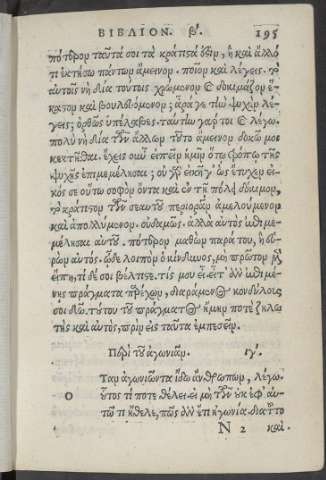 ΒΙΒΛΙΟΝ. β. 195
πότερον ταῦτά σοι τὰ κράτιστα ἐδόκει, ἢ καὶ ἄλλό
τι ἐκτήσω πάντων ἄμεινον. ποῖον καὶ λέγεις. τὸ
αὐτοῖς νὴ δία τούτοις χρώμενον καὶ δοκιμάζον ἕ-
καστον καὶ βουλευόμενον; ἆρά γε τὴν ψυχὴν λέ-
γεις; ὀρθῶς ὑπέλαβες. ταύτην γάρ τοι καὶ λέγω.
πολὺ νὴ δία τῶν ἄλλων τοῦτο ἄμεινον δοκῶ μοι
κεκτῆσθαι. ἔχεις οὖν εἰπεῖν ἡμῖν ὅτῳ τρόπῳ τῆς
ψυχῆς ἐπιμεμέλησαι; οὐ γὰρ εἰκῆ γ' ὡς ἔτυχεν εἰ-
κός σε οὕτω σοφὸν ὄντα καὶ ἐν τῇ πόλει δόκιμον,
τὸ κράτιστον τῶν σεαυτοῦ περιορᾶν ἀμελούμενον
καὶ ἀπολλύμενον. οὐδαμῶς. ἀλλὰ αὐτὸς ἐπιμε-
μέλησαι αὐτοῦ. πότερον μαθὼν παρά του, ἢ εὑ-
ρὼν αὐτός. ὧδε λοιπὸν ὁ κίνδυνος, μὴ πρῶτον μὲν
εἴπῃ, τί δέ σοι βέλτιστε. τίς μου εἶ; εἶτ' ἂν ἐπιμέ-
νῃς πράγματα παρέχων, διαράμενος κονδύλους
σοι δῷ. τούτου τοῦ πράγματος ἤμην ποτὲ ζηλω
τὴς καὶ αὐτὸς, πρὶν εἰς ταῦτα ἐμπεσεῖν.
Περὶ τοῦ ἀγωνιᾶν. ιγ΄.
Ταν ἀγωνιῶντα ἴδω ἄνθρωπον, λέγω.
Ο οὗτος τί ποτε θέλει· εἰ μὴ τῶν οὐκ ἐφ' αὑ-
τῷ τι ἤθελε, πῶς ἂν ἔτι ἠγωνία· διὰ τοῦτο
N 2 καὶ